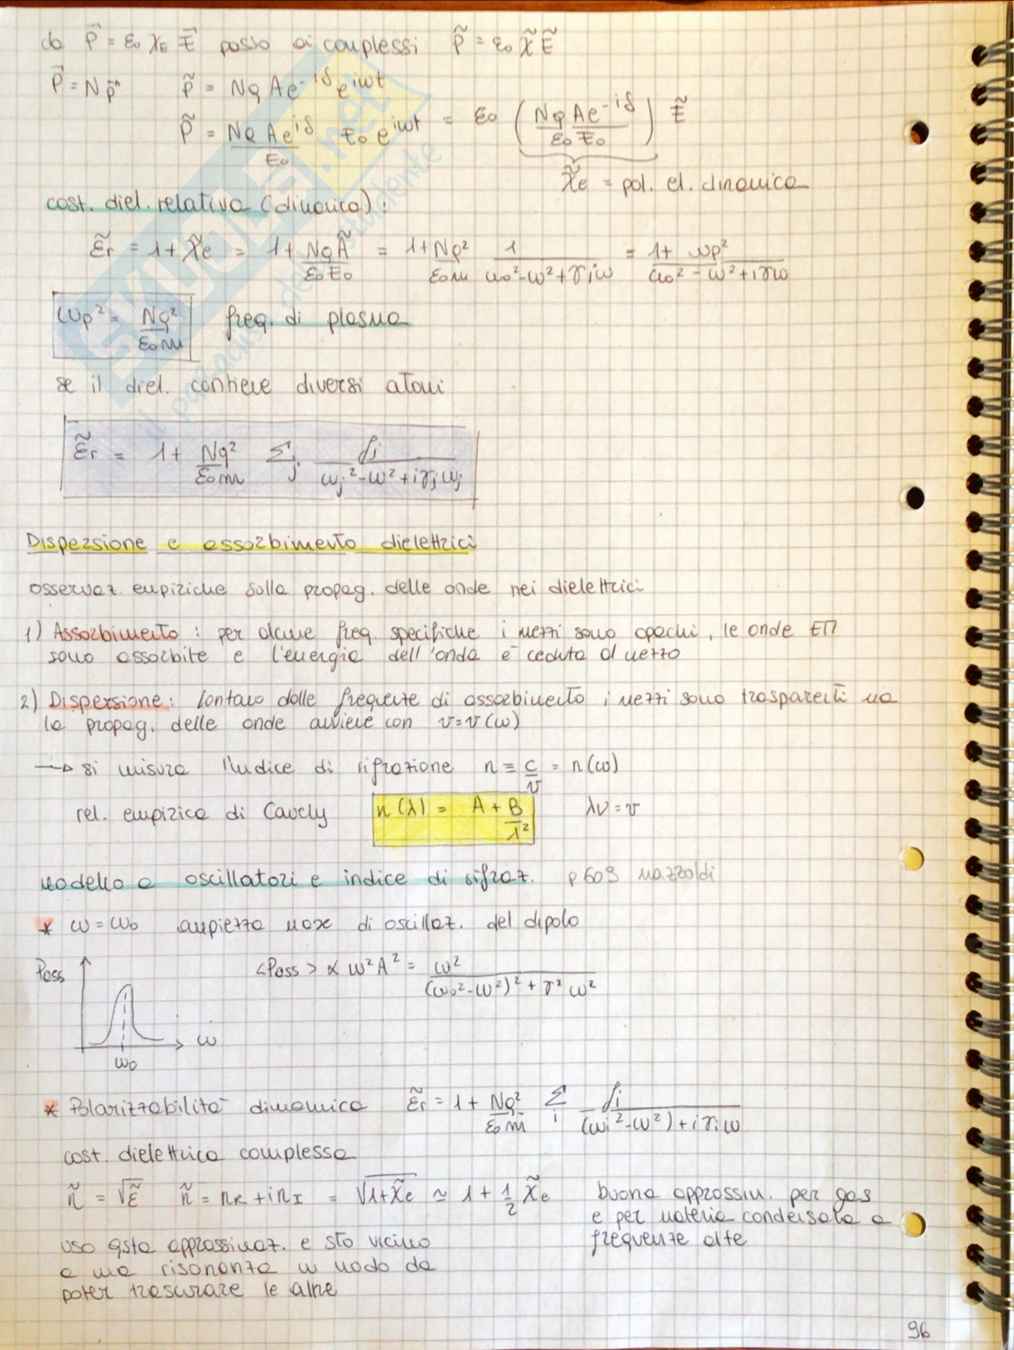 da P⃗ = ε₀ χE E⃗ passo ai complessi P̃ = ε₀ χ̃ Ẽ
P⃗ = N p⃗ P̃ = Nq A e^-iδ e^iωt
P̃ = Nq A e^iδ / ε₀ E₀ e^iωt = ε₀ ( Nq A e^-iδ / ε₀ E₀ ) Ẽ
χ̃e = pol. el. dinamica
cost. diel. relativa (dinamica):
ε̃r = 1 + χ̃e = 1 + NqÃ / ε₀E₀ = 1 + Nq² / ε₀m 1 / ω₀² - ω² + γiω = 1 + ωp² / ω₀² - ω² + iγω
ωp² = Nq² / ε₀m freq. di plasma
se il diel. contiene diversi atomi
ε̃r = 1 + Nq² / ε₀m Σj fj / ωj² - ω² + iγjωj
Dispersione e assorbimento dielettrici
osservaz. empiriche sulla propag. delle onde nei dielettrici
1) Assorbimento: per alcune freq. specifiche i mezzi sono opachi, le onde EM
sono assorbite e l'energia dell'onda è ceduta al mezzo
2) Dispersione: lontano dalle frequenze di assorbimento i mezzi sono trasparenti ma
la propag. delle onde avviene con v = v(ω)
→ si misura l'indice di rifrazione n ≡ c / v = n(ω)
rel. empirica di Cauchy n(λ) = A + B / λ² λν = v
modello a oscillatori e indice di rifraz. p 609 mazzoldi
* ω = ω₀ ampiezza max di oscillaz. del dipolo
Pass <Pass> ∝ ω²A² = ω² / (ω₀² - ω²)² + γ²ω²
ω
ω₀
* Polarizzabilità dinamica ε̃r = 1 + Nq² / ε₀m Σi fi / (ωi² - ω²) + iγiω
cost. dielettrica complessa
ñ = √ε̃ ñ = nR + inI = √1+χ̃e ≃ 1 + 1/2 χ̃e buona approssim. per gas
e per materia condensata a
frequenze alte
uso qsta approssimaz. e sto vicino
a una risonanza in modo da
poter trascurare le altre
96